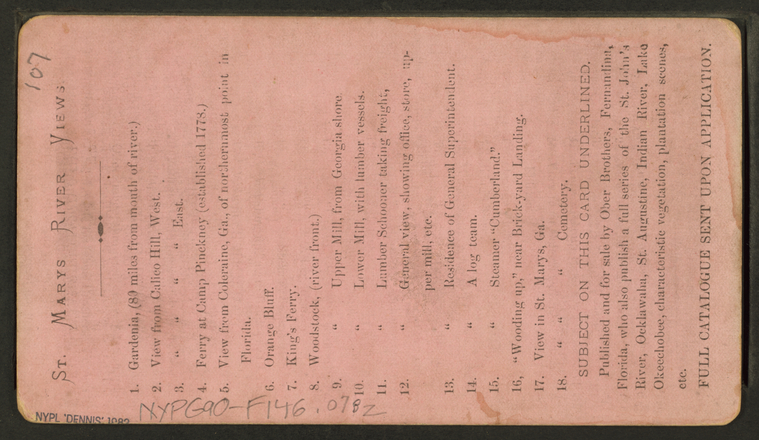 107
ST. MARYS RIVER VIEWS.
1. Gardenia, (89 miles from mouth of river.)
2. View from Calico Hill, West.
3. " " " " East.
4. Ferry at Camp Pinckney (established 1778.)
5. View from Coleraine, Ga., of northernmost point in
Florida.
6. Orange Bluff.
7. King's Ferry.
8. Woodstock, (river front.)
9. " Upper Mill, from Georgia shore.
10. " Lower Mill, with lumber vessels.
11. " Lumber Schooner taking freight,
12. " General view, showing office, store, up-
per mill, etc.
13. " Residence of General Superintendent.
14. " A log team.
15. " Steamer "Cumberland."
16, "Wooding up," near Brick-yard Landing.
17. View in St. Marys, Ga.
18. " " " Cemetery.
SUBJECT ON THIS CARD UNDERLINED.
Published and for sale by Ober Brothers, Fernandina,
Florida, who also publish a full series of the St. John's
River, Ocklawaha, St. Augustine, Indian River, Lake
Okeechobee, characteristic vegetation, plantation scenes,
etc.
FULL CATALOGUE SENT UPON APPLICATION.
NYPL 'DENNIS' 1982
NYPG90-F146.078z